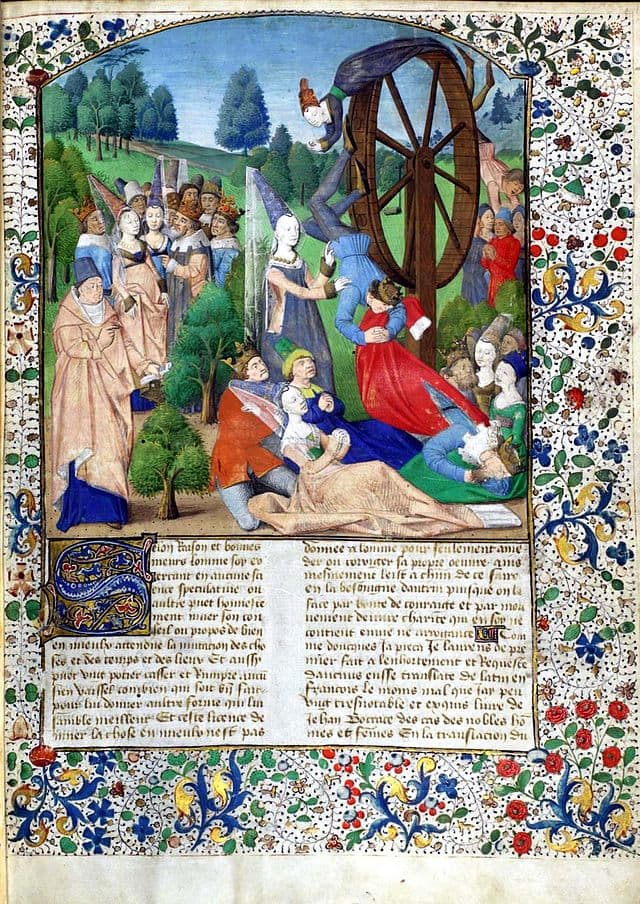 Selon raison et bonnes
meurs lomme soy ex
ercant en aucune sci
ence speculatiue ou
aultre puet honneste
ment muer son con
seil ou propos de bien
en mieulx attendue la mutation des cho
ses et des temps et des lieux Et aussi
puet ung potier casser et Rompre aucu
sien vaissel combien qui soit bien fait
pour lui donner aultre forme qui lui
semble meilleur Et ceste licence de
muer la chose en mieulx nest pas
donnee a lomme pour seulement ame
der ou corriger sa propre oeuure ains
mesmement leist a chun de ce faire
en la besoingne dautruy puisque on la
face par bonte de couraige et par mo
uement de pure charite qui en soy ne
contient enuie ne arrogance
me doncques Ja pieca Je laurens de pre
mier fait a lenhortement et Requeste
daucuns eusse translate de latin en
francois le moins mal que Jay peu
Ung tresnotable et exquis liure de
Jehan Bocace des cas des nobles ho
mes et femes En la translation du